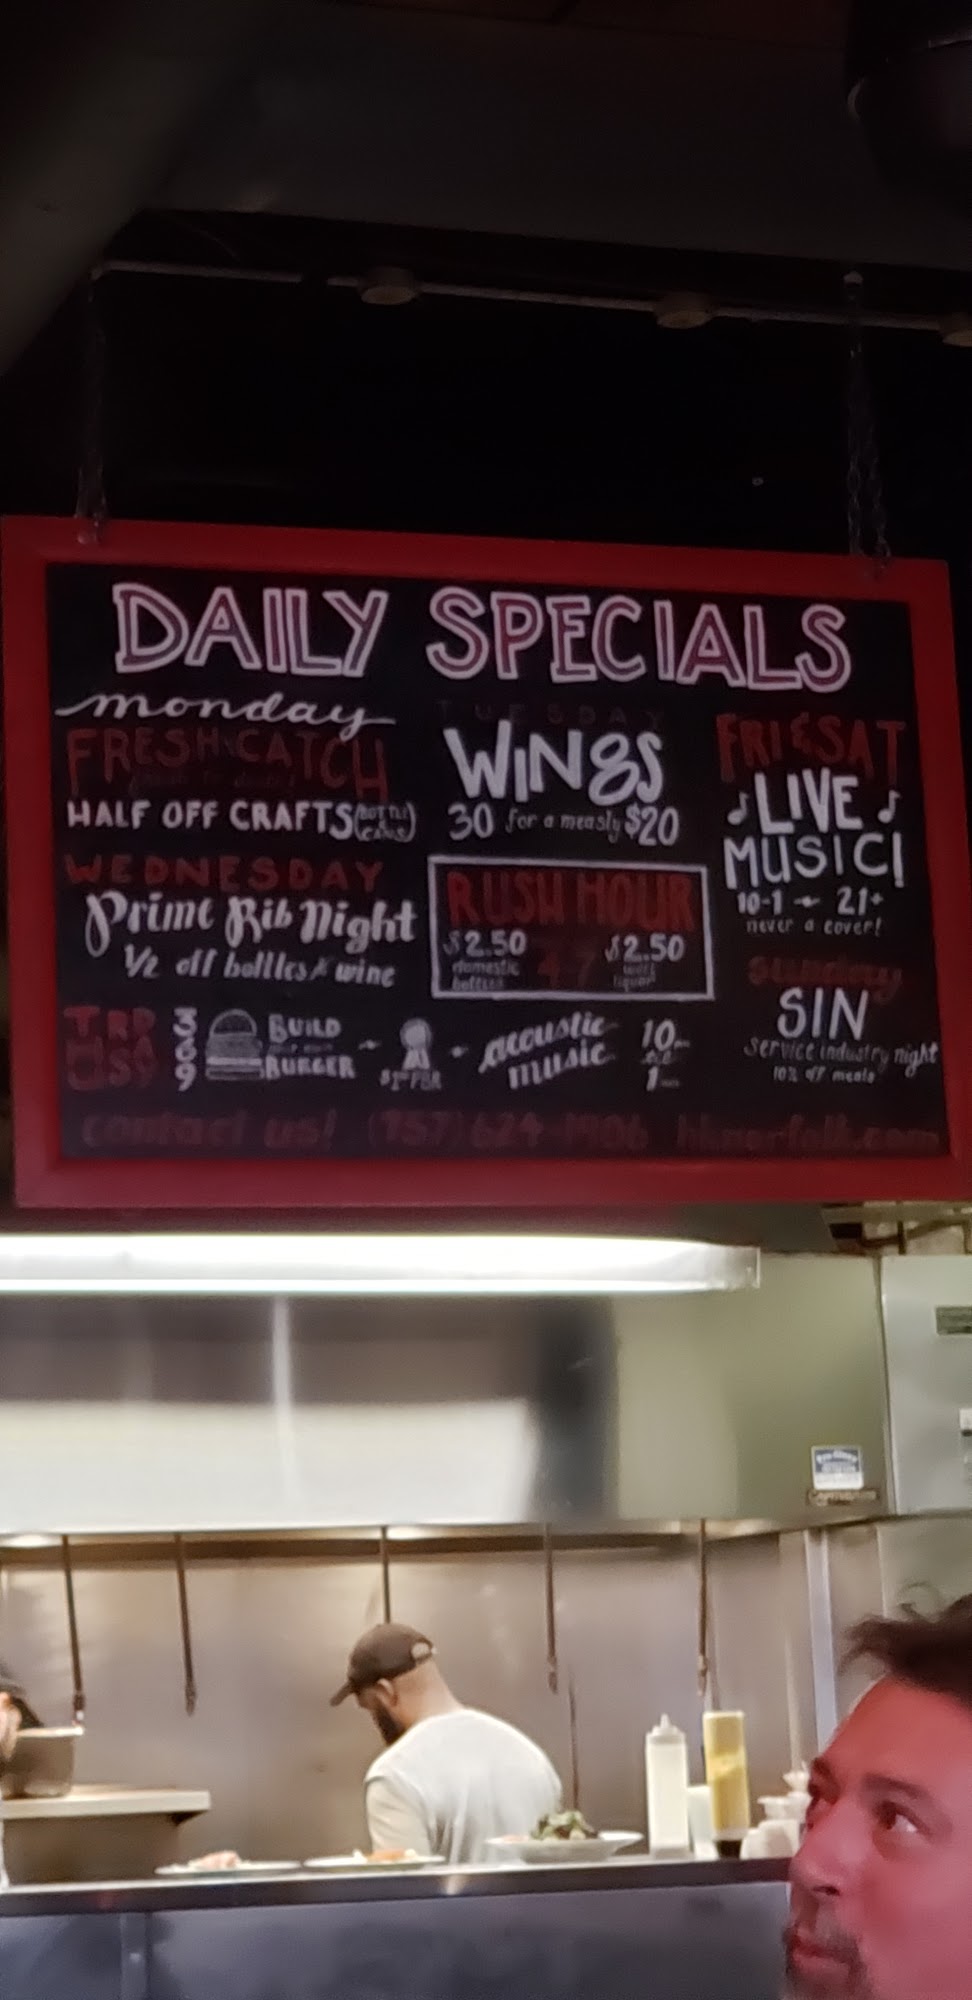 DAILY SPECIALS
monday
FRESH CATCH
HALF OFF CRAFTS
TUESDAY
WINGS
30 for a measly $20
WEDNESDAY
Prime Rib Night
1/2 off bottles wine
RUSH HOUR
4-7
$2.50
domestic
bottles
$2.50
liquor
FRI & SAT
LIVE
MUSIC!
10-1 ~ 21+
never a cover!
sunday
SIN
service industry night
10% off meals
THURSDAY
BUILD
BURGER
acoustic
music
10
1
contact us! (757) 624-1906